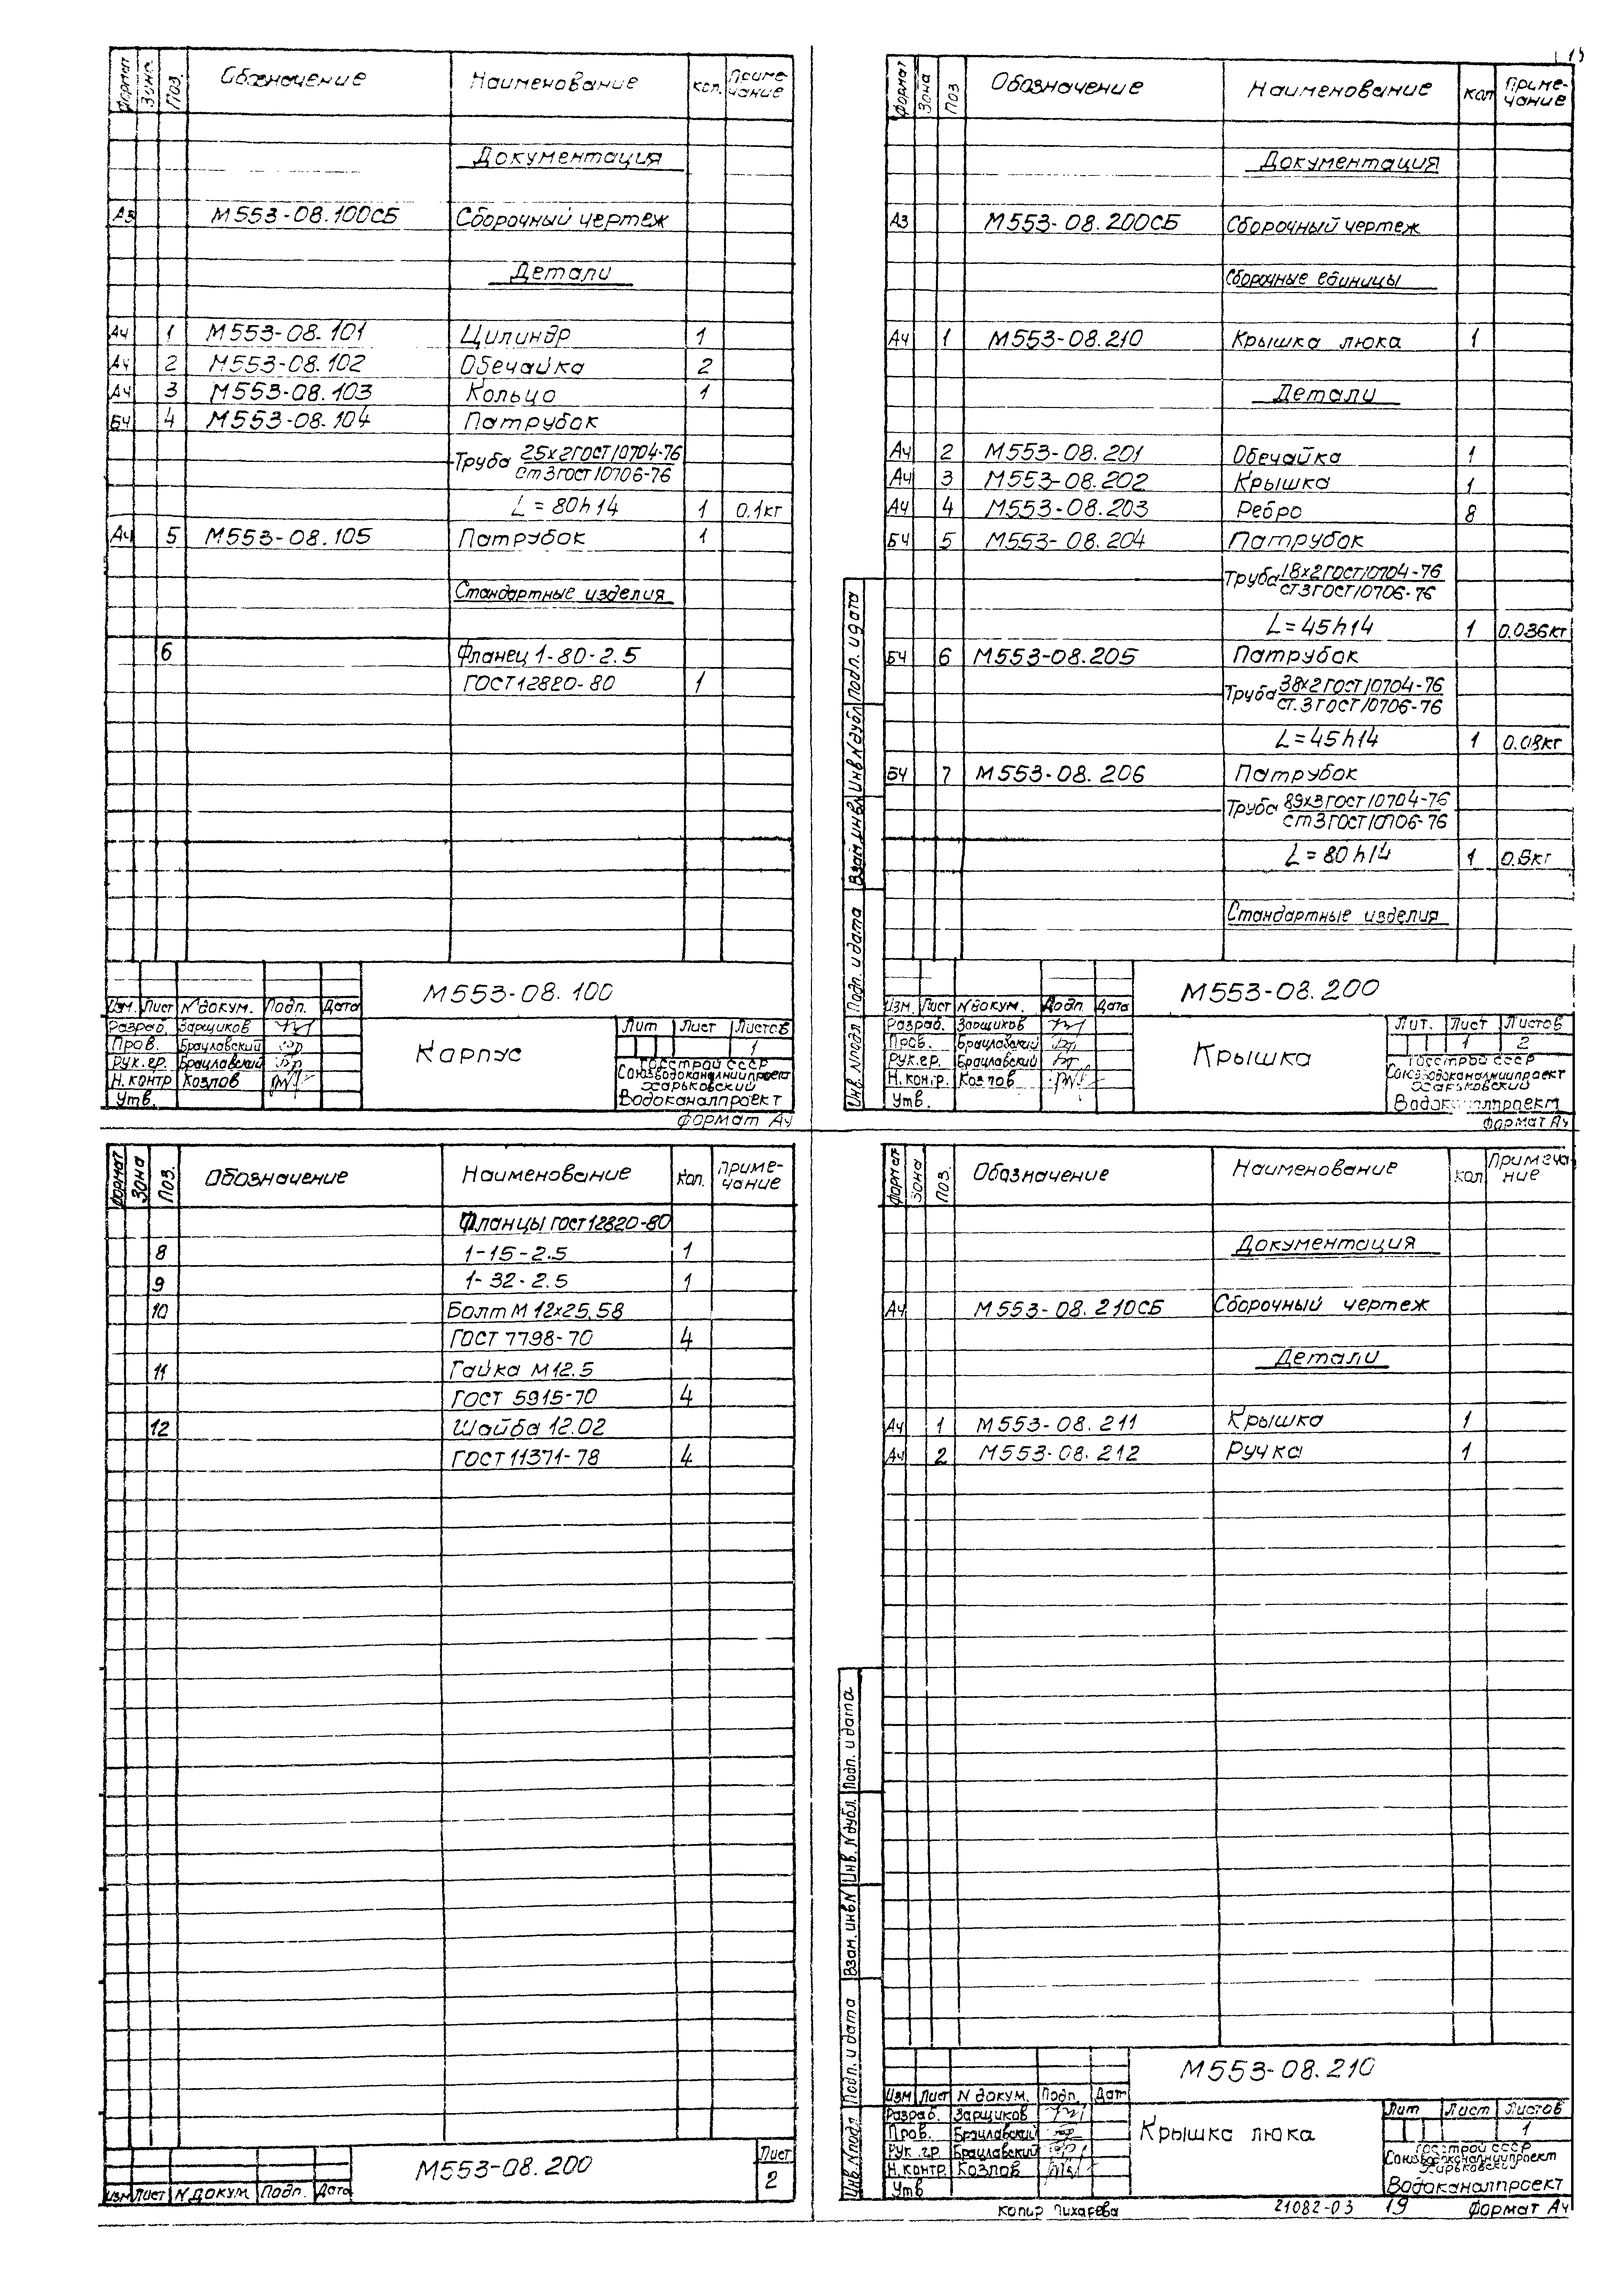 Формат Зона Поз. Обозначение Наименование Кол. Приме-
чание
Документация
А3 М553-08.100СБ Сборочный чертеж
Детали
А4 1 М553-08.101 Цилиндр 1
А4 2 М553-08.102 Обечайка 2
А4 3 М553-08.103 Кольцо 1
БЧ 4 М553-08.104 Патрубок
Труба 25х2 ГОСТ 10704-76
Ст3 ГОСТ 10706-76
L = 80h14 1 0.1кг
А4 5 М553-08.105 Патрубок 1
Стандартные изделия
6 Фланец 1-80-2.5
ГОСТ 12820-80 1
М553-08.100
Изм. Лист N докум. Подп. Дата
Разраб. Зарщиков
Пров. Брауловский
Рук.гр. Брауловский
Н.контр Козлов
Утв.
Карпус
Лит Лист Листов
1
Госстрой СССР
Союзводоканалниипроект
Харьковский
Водоканалпроект
Формат А4
Формат Зона Поз Обозначение Наименование Кол Приме-
чание
Документация
А3 М553-08.200СБ Сборочный чертеж
Сборочные единицы
А4 1 М553-08.210 Крышка люка 1
Детали
А4 2 М553-08.201 Обечайка 1
А4 3 М553-08.202 Крышка 1
А4 4 М553-08.203 Ребро 8
БЧ 5 М553-08.204 Патрубок
Труба 18х2 ГОСТ 10704-76
Ст3 ГОСТ 10706-76
L = 45h14 1 0.036кг
БЧ 6 М553-08.205 Патрубок
Труба 38х2 ГОСТ 10704-76
Ст.3 ГОСТ 10706-76
L = 45h14 1 0.08кг
БЧ 7 М553-08.206 Патрубок
Труба 89х3 ГОСТ 10704-76
Ст3 ГОСТ 10706-76
L = 80h14 1
Стандартные изделия
Инв. N подл Подп. и дата Взам. инв N Инв N дубл Подп. и дата
М553-08.200
Изм. Лист N докум. Подп Дата
Разраб. Зарщиков
Пров. Брауловский
Рук.гр. Брауловский
Н.контр. Козлов
Утв.
Крышка
Лит. Лист Листов
1 2
Госстрой СССР
Союзводоканалниипроект
Харьковский
Водоканалпроект
Формат А4
Формат Зона Поз. Обозначение Наименование Кол. Приме-
чание
Фланцы ГОСТ 12820-80
8 1-15-2.5 1
9 1-32-2.5 1
10 Болт М12х25,58
ГОСТ 7798-70 4
11 Гайка М12.5
ГОСТ 5915-70 4
12 Шайба 12.02
ГОСТ 11371-78 4
М553-08.200
Лист
2
Изм Лист N докум Подп. Дата
Формат Зона Поз. Обозначение Наименование Кол Примеча-
ние
Документация
А4 М553-08.210СБ Сборочный чертеж
Детали
А4 1 М553-08.211 Крышка 1
А4 2 М553-08.212 Ручка 1
Инв. N подл Подп. и дата Взам. инв N Инв. N дубл. Подп. и дата
М553-08.210
Изм Лист N докум. Подп. Дат
Разраб. Зарщиков
Пров. Брауловский
Рук.гр. Брауловский
Н.контр Козлов
Утв
Крышка люка
Лит Лист Листов
1
Госстрой СССР
Союзводоканалниипроект
Харьковский
Водоканалпроект
Копир 21082-03 19 Формат А4